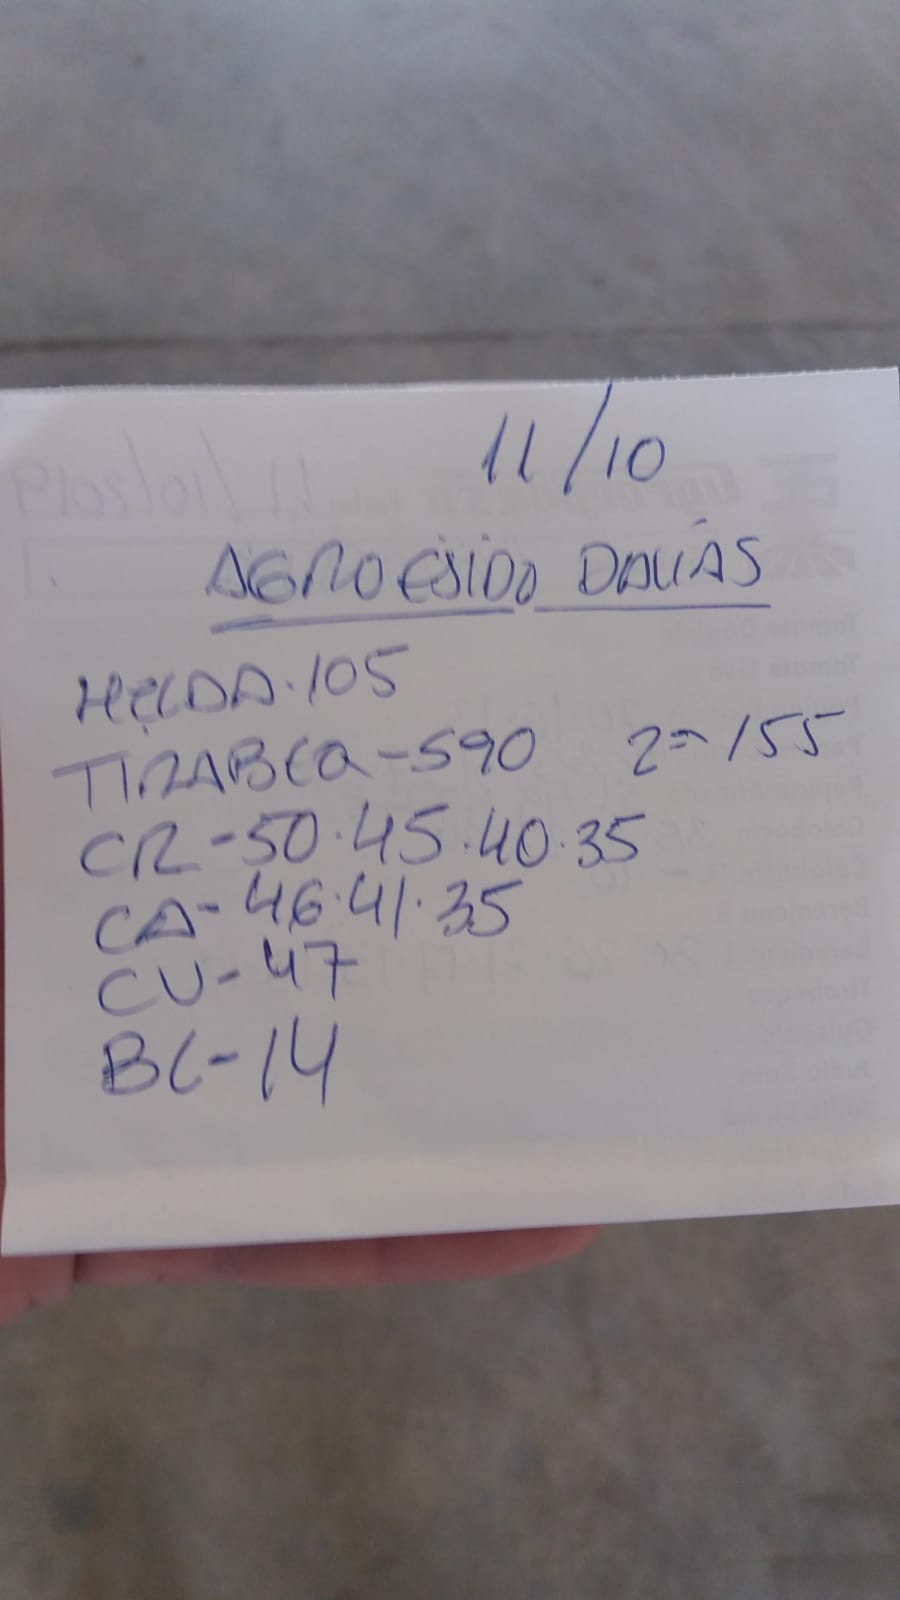 11/10
AGROEJIDO DALIAS
HELDA.105
TIRABEQ-590 2=155
CR-50.45.40.35
CA-46.41.35
CU-47
BL-14